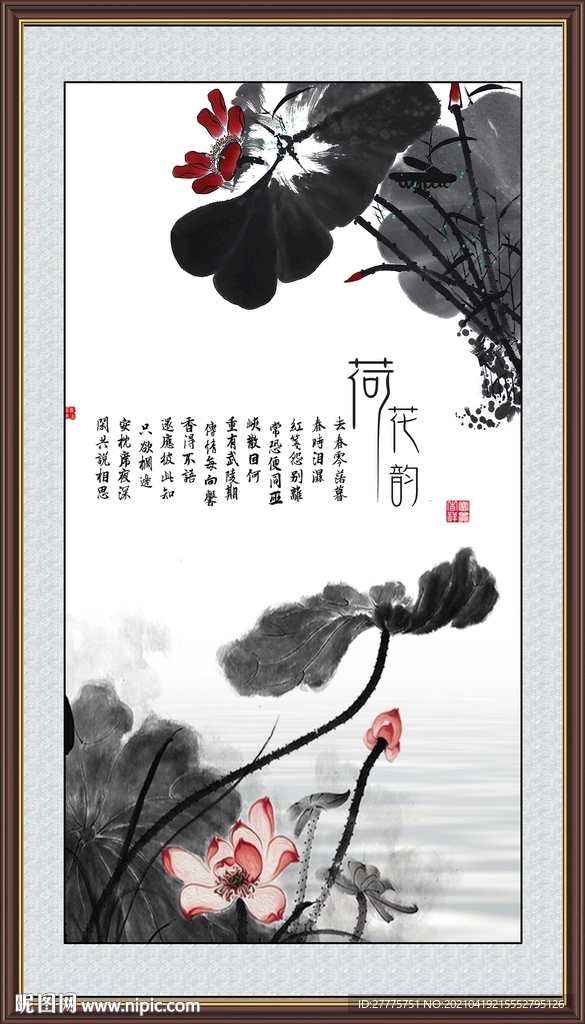 荷花韵
去春零落暮
春時泪濕
紅箋怨别離
常恐便同巫
峽散因何
重有武陵期
傳情每向馨
香得不語
還應彼此知
只欲欄邊
安枕席夜深
閑共説相思
昵图网 www.nipic.com
ID:27775751 NO:20210419215552795126